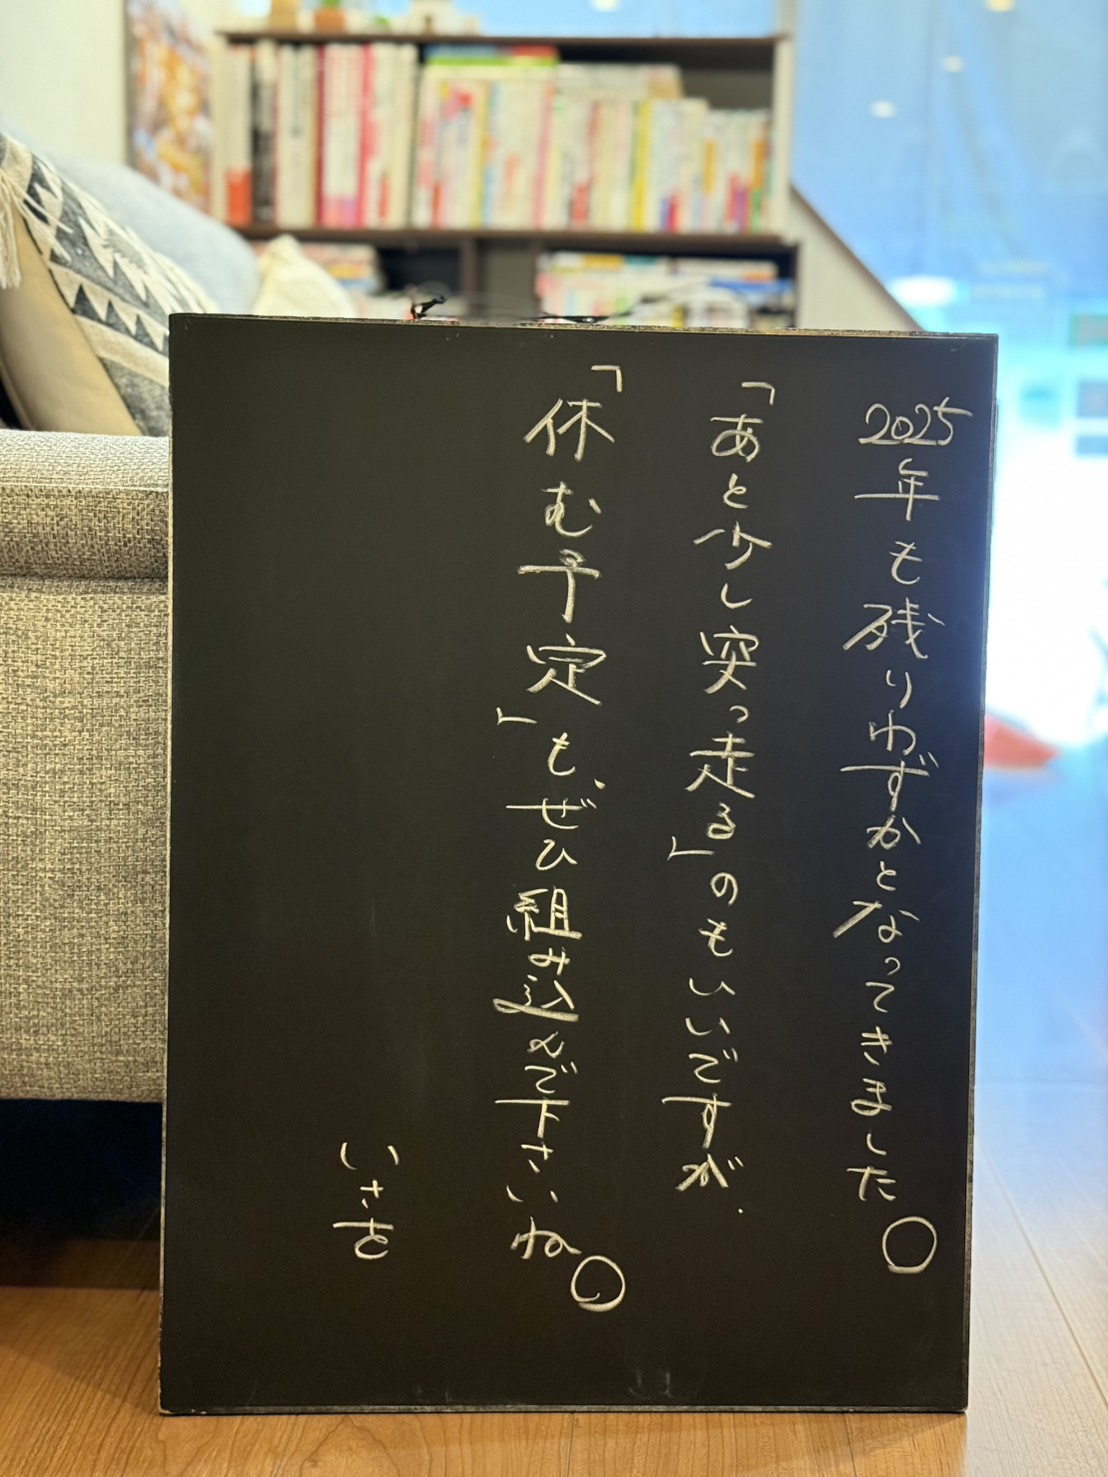 2025年も残りわずかとなってきました。
「あと少し突っ走る」のもいいですが、
「休む予定」も、ぜひ組み込んで下さいね。
いさを